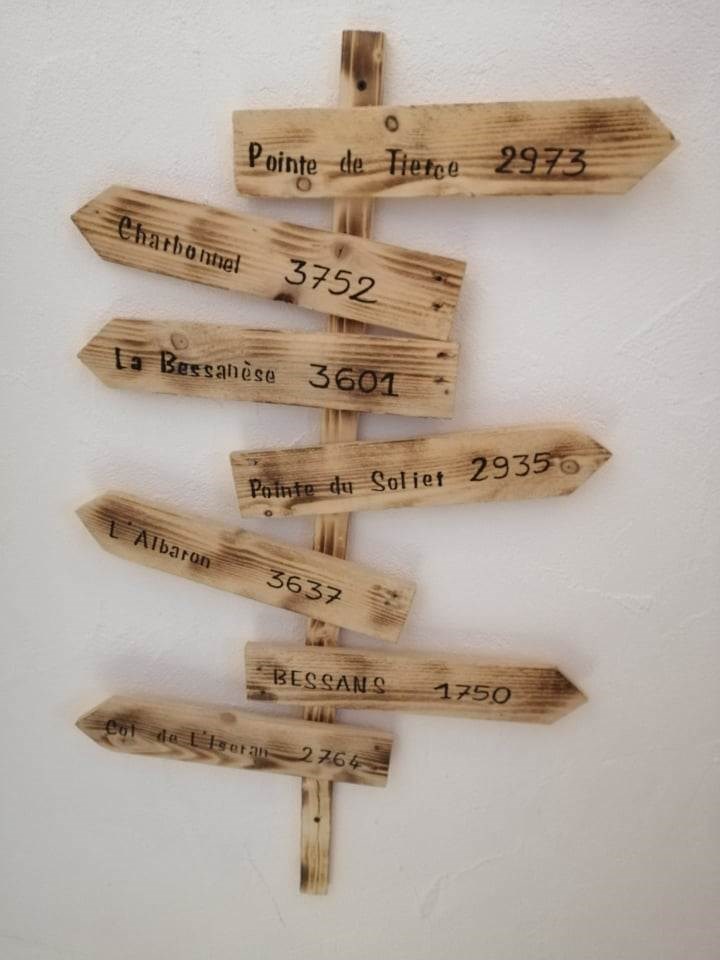 Pointe de Tierce 2973
Charbonnel 3752
La Bessanèse 3601
Pointe du Soliet 2935
L'Albaron 3637
BESSANS 1750
Col de L'Iseran 2764